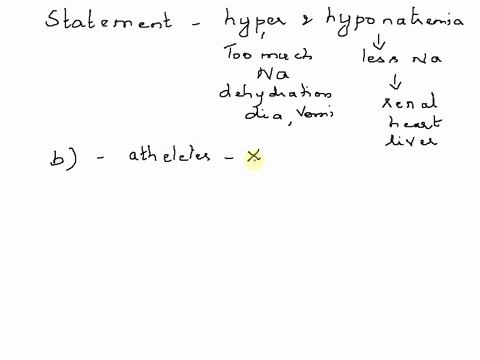 Statement - hyper & hyponatremia
Too much
Na
dehydration
dia, Vomi
less Na
renal
heart
liver
b) - atheletes - ×